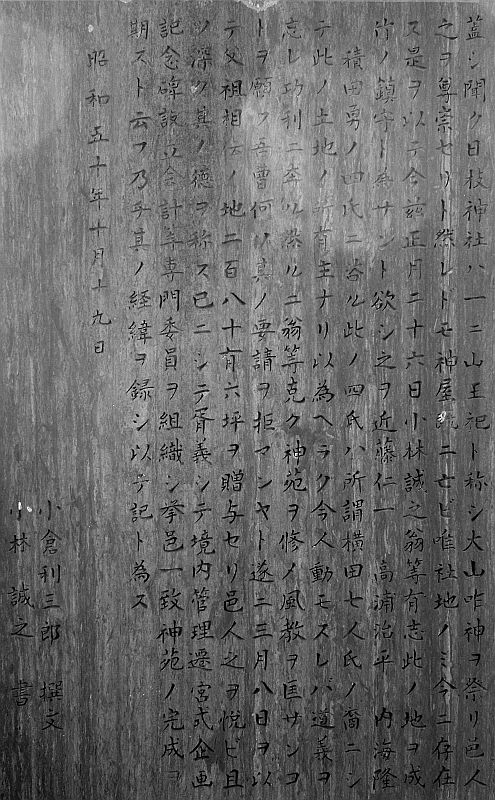 蓋シ聞ク日枝神社ハ一ニ山王祀ト称シ大山咋神ヲ祭リ邑人
之ヲ尊崇セリト然レドモ神屋既ニ亡ビ唯社地ノミ今ニ存在
ス是ヲ以テ今茲正月二十六日小林誠之翁等有志此ノ地ヲ成
竹ノ鎮守ト為サント欲シ之ヲ近藤仁一 高浦治平 内海隆
積田勇ノ四氏ニ咨ル此ノ四氏ハ所謂横田七人氏ノ裔ニシ
テ此ノ土地ノ所有主ナリ以為ヘラク今人動モスレバ道義ヲ
忘レ功利ニ奔ル然ルニ翁等克ク神苑ヲ修メ風教ヲ匡サンコ
トヲ願ク吾曹何ゾ其ノ要請ヲ拒マンヤト遂ニ三月八日ヲ以
テ父祖相伝ノ地二百八十有六坪ヲ贈与セリ邑人之ヲ悦ビ且
ツ深ク其ノ徳ヲ称ス已ニシテ胥義シテ境内管理遷宮式企画
記念碑設立会計等専門委員ヲ組織シ挙邑一致神苑ノ完成ヲ
期スト云フ乃チ其ノ経緯ヲ録シ以テ記ト為ス
昭和五十年十月十九日
小倉利三郎 撰文
小林誠之 書